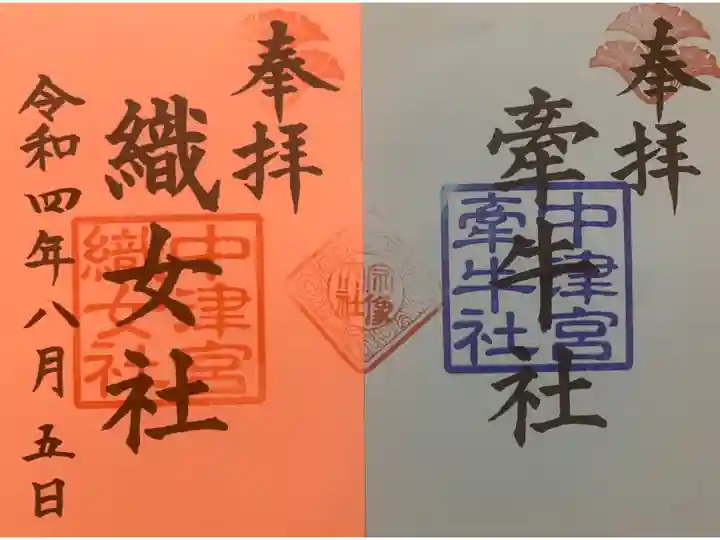 奉拝
牽牛社
中津宮
牽牛社
宗像
大社
奉拝
織女社
中津宮
織女社
令和四年八月五日